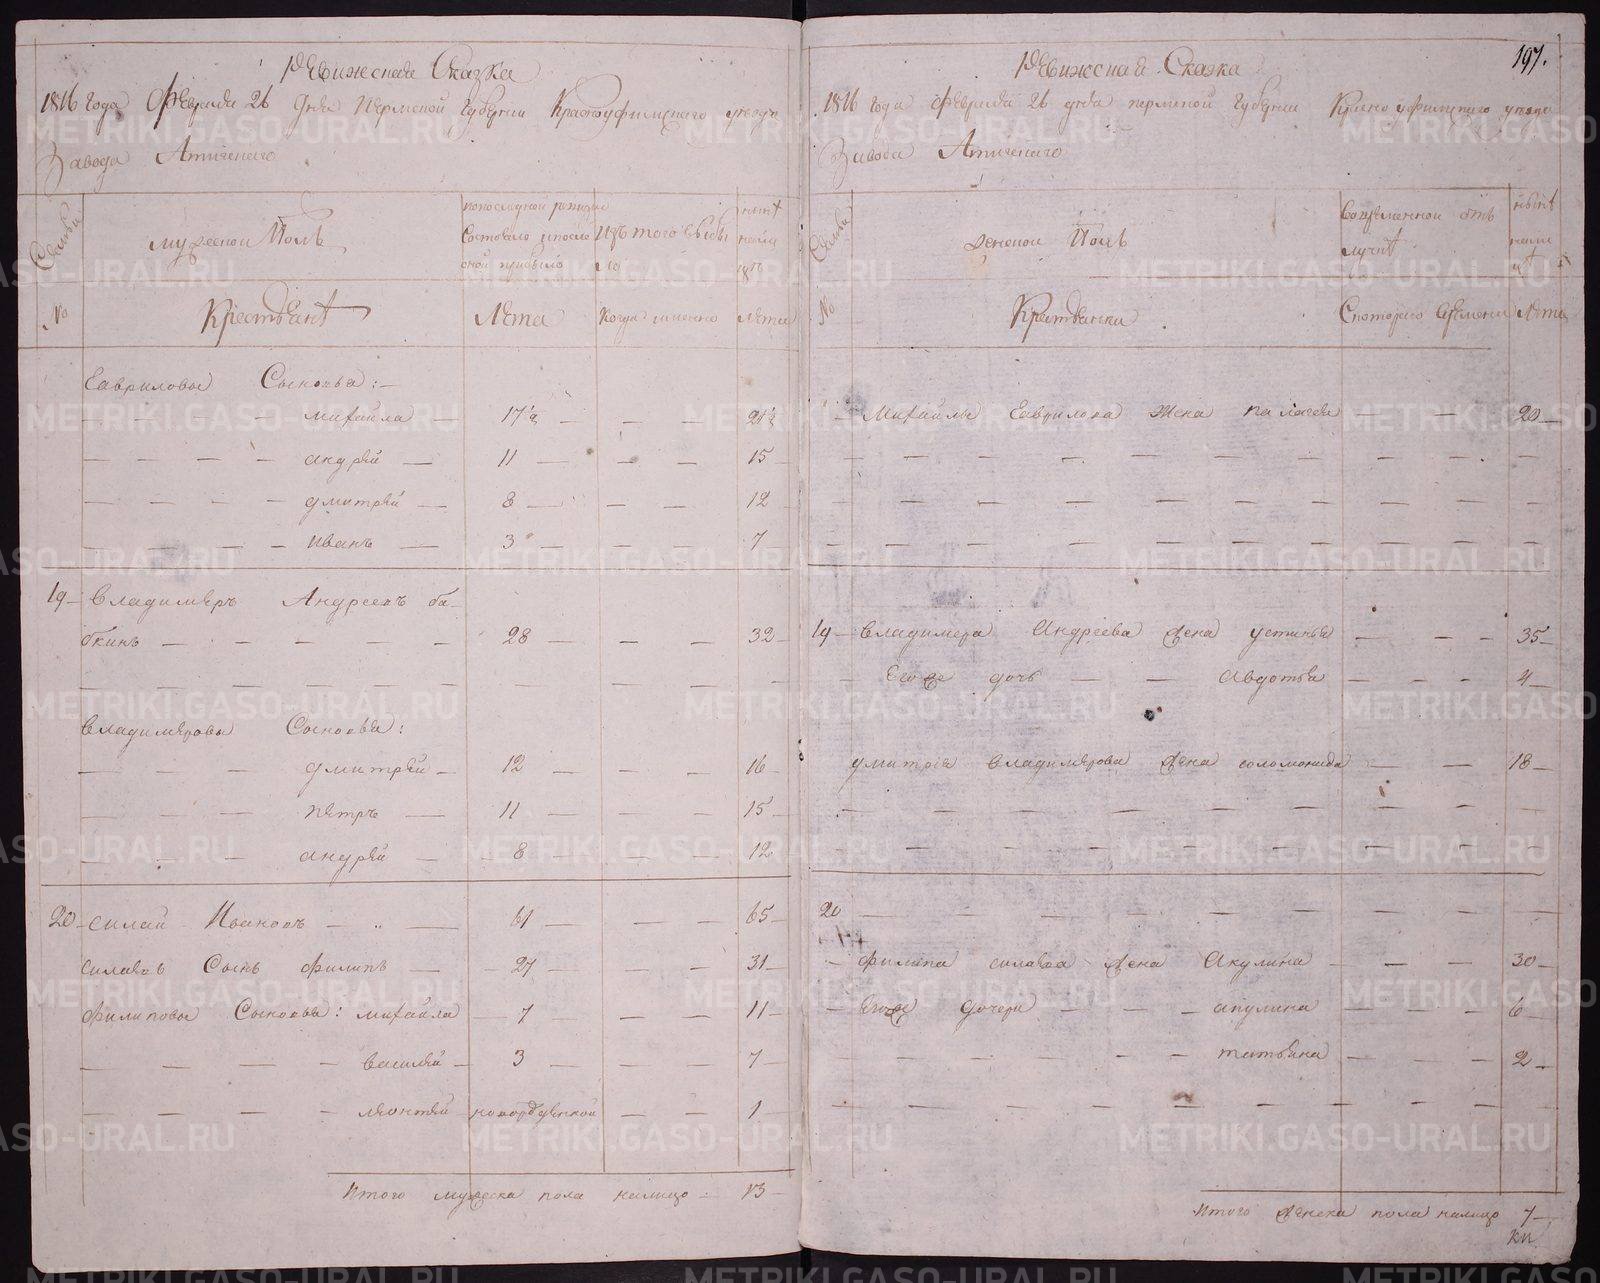 Ревижская Сказка
1816 года Февраля 26 дня Пермской Губернии Красноуфимскаго уезда
Завода Атигскаго
Семьи
мужеской Полъ
попоследной ревизии
Состояло ипосле
оной прибыло
Изъ того выбы
ло
ныне
нали
цо
№
Крестьяне
Лета
Когда имянно
Лета
Гавриловы Сыновья: —
— — — михайла — 17½ — — — 21½
— — — — андрей — 11 — — — 15
— — — — дмитрей — 8 — — — 12
— — — — иванъ — 3 — — — 7
19 Владимеръ Андреевъ ба-
бкинъ — — — — — 28 — — — 32
Владимеровы Сыновья:
— — — дмитрей — 12 — — — 16
— — — петръ — 11 — — — 15
— — — андрей — 8 — — — 12
20 силай Ивановъ — „ — 61 — — — 65
силавъ Сынъ филипъ — 27 — — — 31
филиповы Сыновья: михайла — 7 — — — 11
— — — — василей — 3 — — — 7
— — — — леонтей новорожденной — — 1
Итого мужеска пола налицо — 13
197.
Ревижская Сказка
1816 года февраля 26 дня пермской Губернии Красноуфимскаго уезда
Завода Атигскаго
Семьи
женской Полъ
Вовременной отъ
лучке
ныне
нали
це
№
Крестьянки
Скотораго времени
Лета
— Михайлы Гаврилова Жена палагея — — 20
19 — Владимера Андреева жена устинья — — — 35
— Егоже дочь — — авдотья — — — 4
дмитрія владимерова жена соломонида — — 18
20 — — — — — — — —
— филипа силава жена Акулина — — — 30
— Егоже дочери — — — акулина — — — 6
— — — — — татьяна — — — 2
Итого женска пола налицо 7